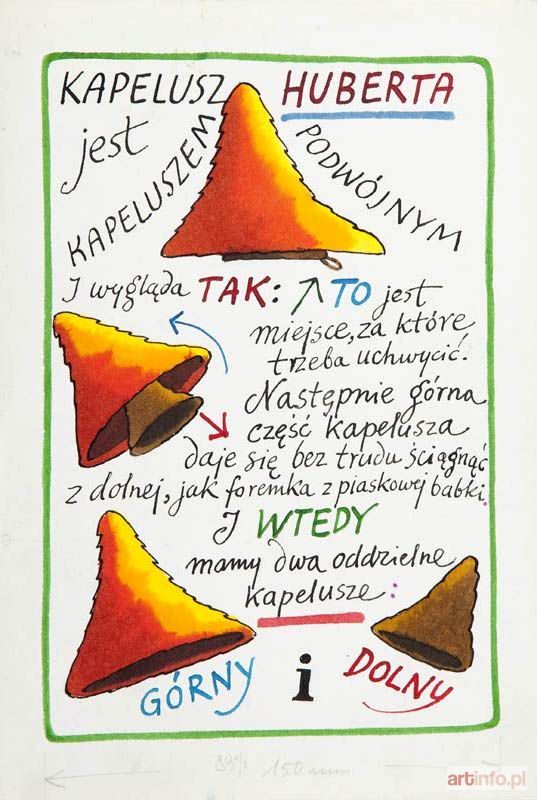 KAPELUSZ HUBERTA
jest
KAPELUSZEM PODWÓJNYM
I wygląda TAK: TO jest
miejsce, za które
trzeba uchwycić.
Następnie górna
część kapelusza
daje się bez trudu ściągnąć
z dolnej, jak foremka z piaskowej babki.
I WTEDY
mamy dwa oddzielne
kapelusze:
GÓRNY i DOLNY
150 mm
artinfo.pl